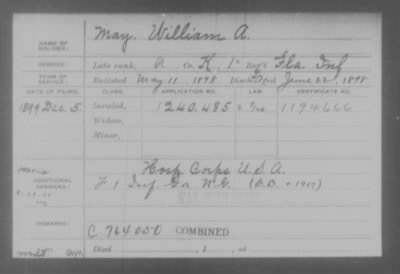 NAME OF SOLDIER: May, William A.
SERVICE: Late rank, Co. K, 1" Reg't Fla Inf
TERM OF SERVICE: Enlisted May 11, 1898 Discharged June 22, 1898
DATE OF FILING. CLASS. APPLICATION NO. LAW. CERTIFICATE NO.
1899 Dec. 5. Invalid, 1240.485 1194666
Widow,
Minor,
ADDITIONAL SERVICES: Hosp. Corps U.S.A.
F 1 Inf Ga. N.G.
REMARKS:
C 764050 COMBINED
Died , 1 , at